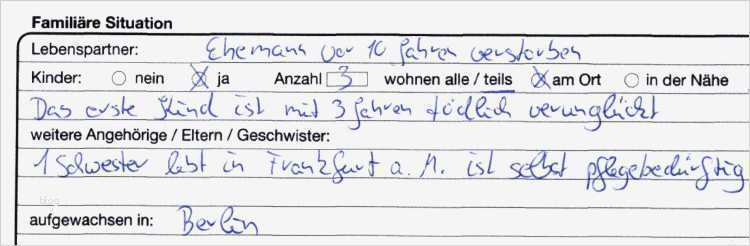 Familiäre Situation
Lebenspartner: Ehemann vor 10 Jahren verstorben
Kinder: nein ja Anzahl 3 wohnen alle / teils am Ort in der Nähe
Das erste Kind ist mit 3 Jahren tödlich verunglückt
weitere Angehörige / Eltern / Geschwister:
1 Schwester lebt in Frankfurt a. M. ist selbst pflegebedürftig
blog
aufgewachsen in: Berlin